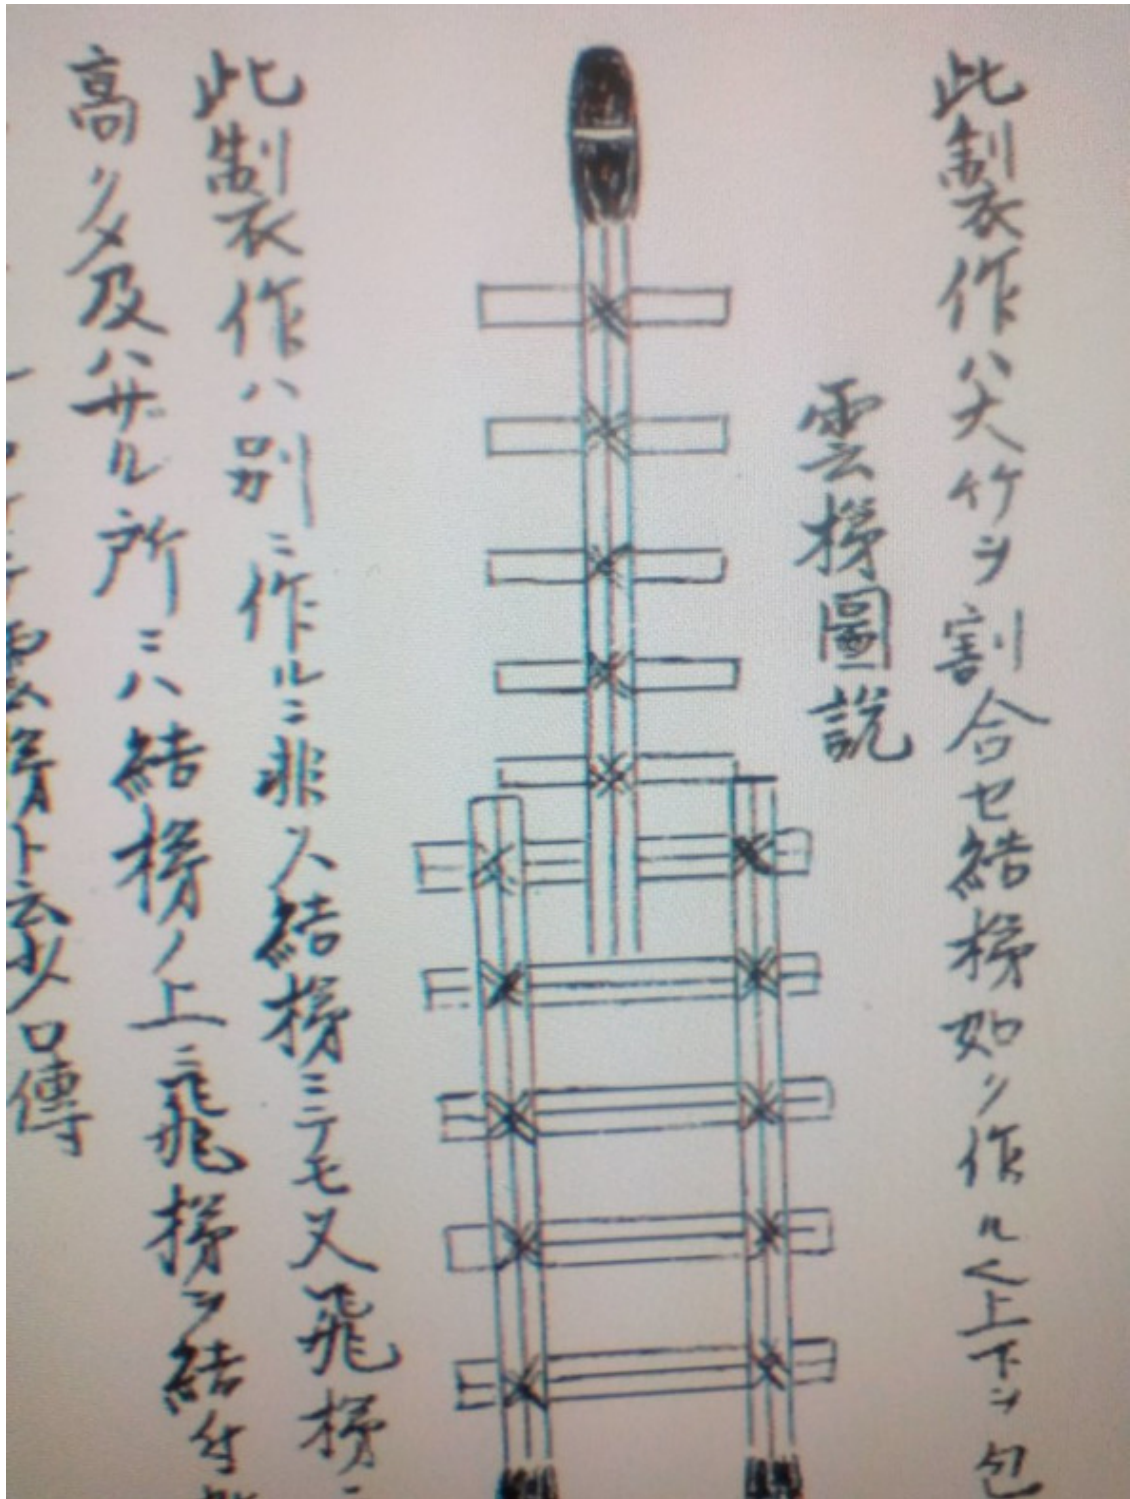 此製作ハ大竹ヲ割合セ結梯如ク作ルベ上下ヲ包
雲梯圖説
此製作ハ別ニ作ルニ非ス結梯ニテモ又飛梯ニ
高クメ及ハザル所ニハ結梯ノ上ニ飛梯ヲ結付
雲梯ト云 口傳